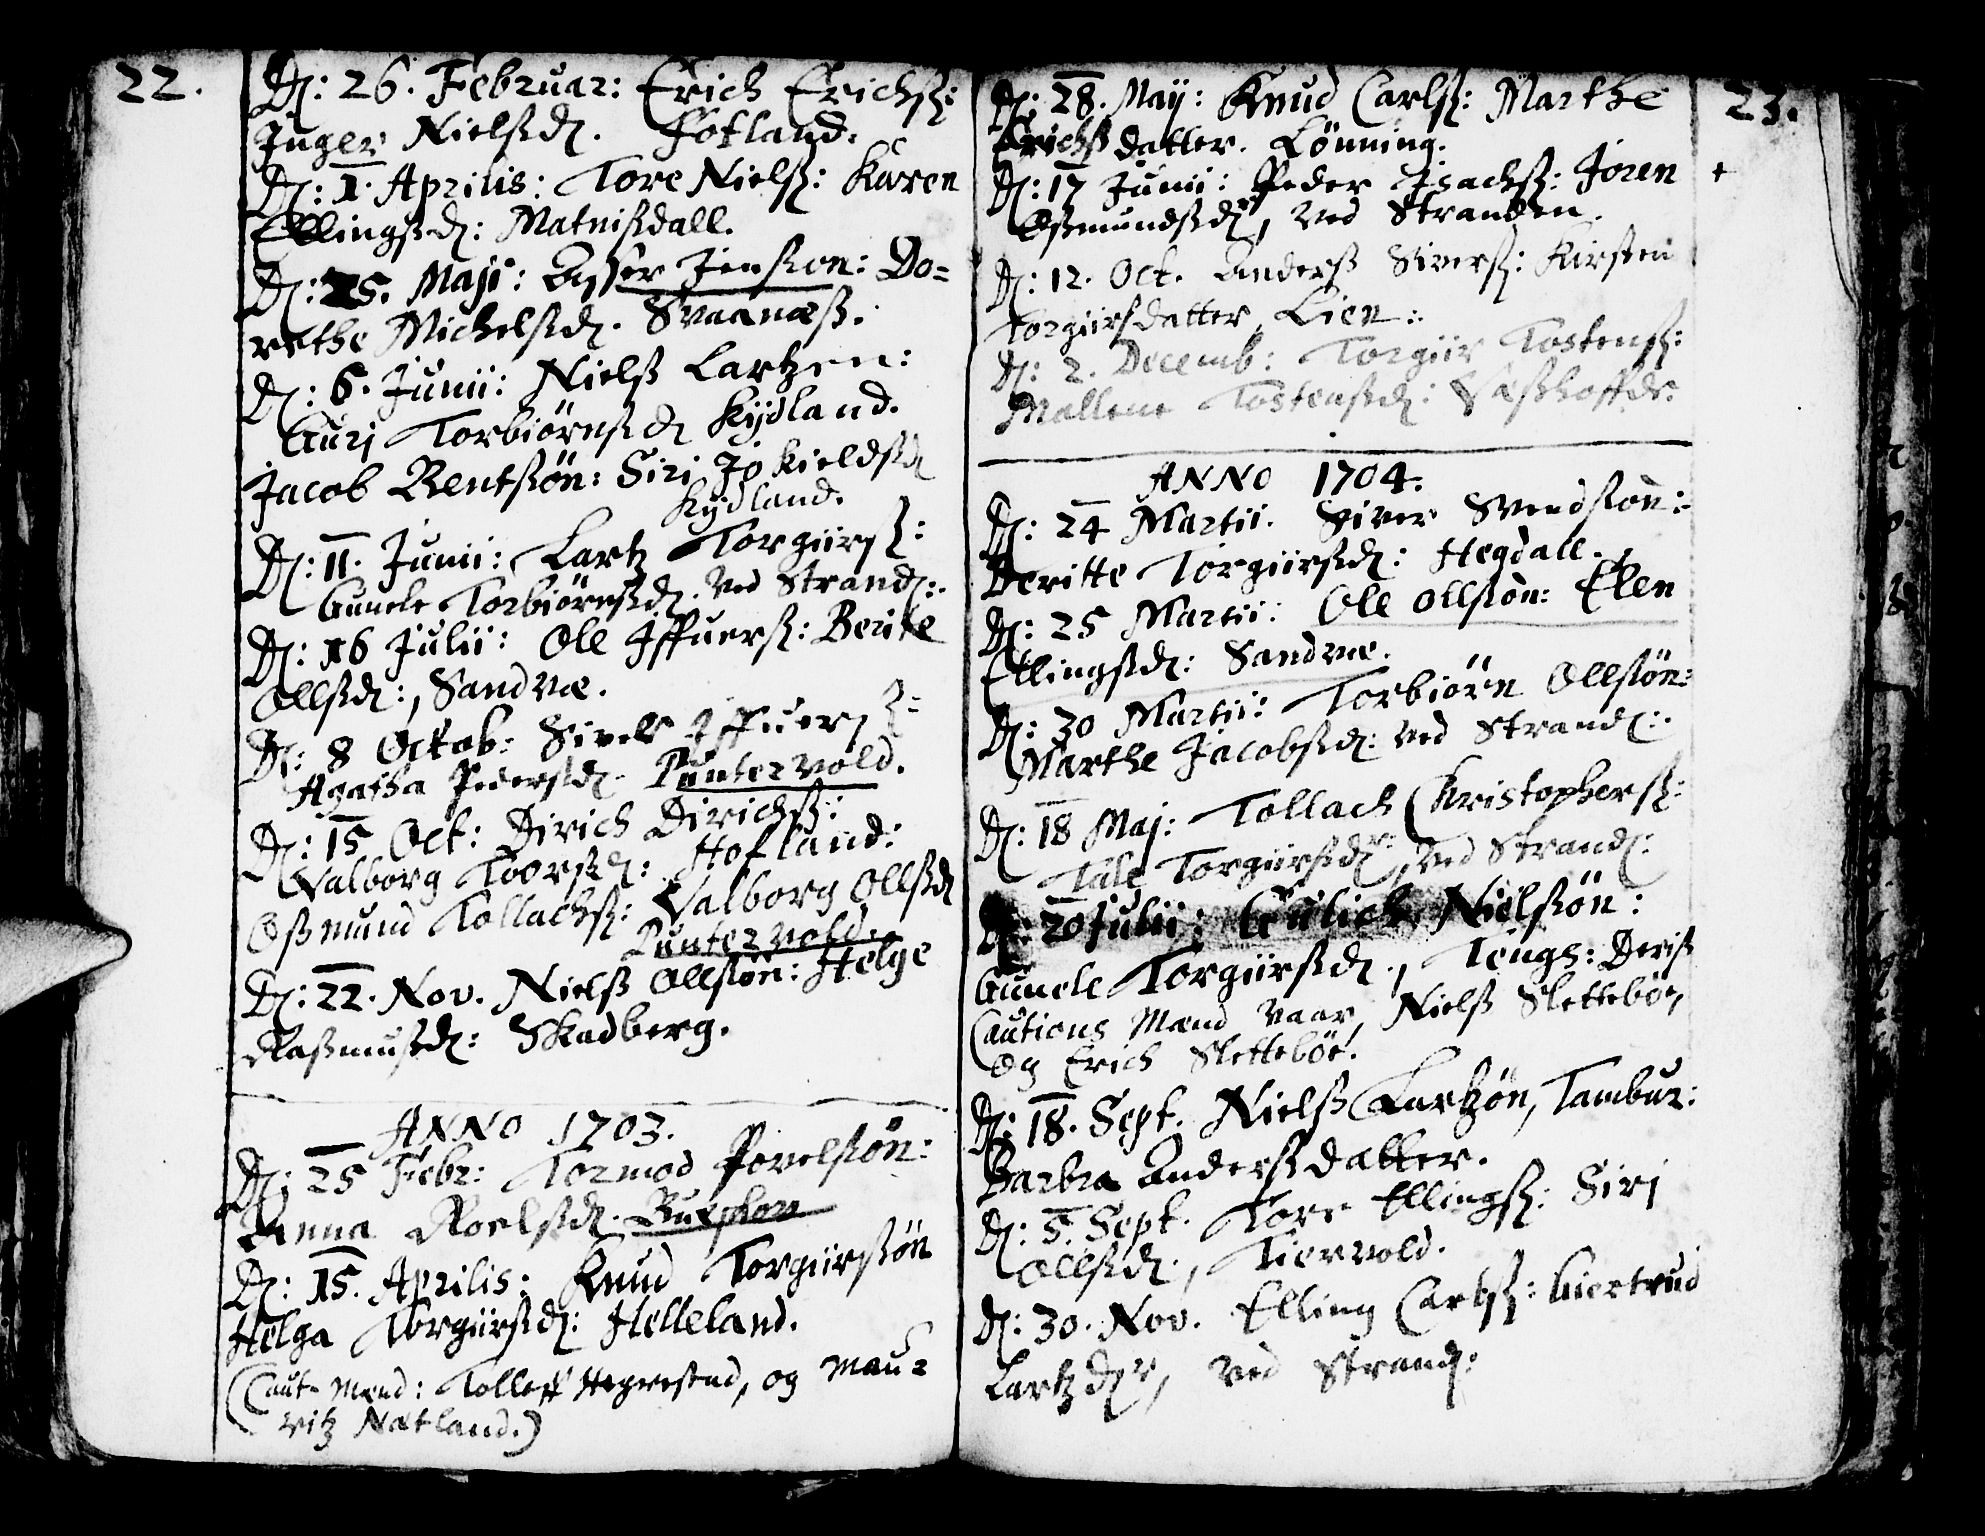 22.
D: 26. Februar: Erich Erichß:
Inger Nielsd. Fotland:
D: 1. Aprilis: Tore Nielß: Karen
Ellingsd: Matnisdall.
D: 25. Maji: Asser Jension: Do=
rethe Michelsd. Svaanæß.
D: 6. Junii: Nielß Lartzen:
Guri Torbiørnsd Kydland.
Jacob Bentsøn: Siri Jokieldsd
Kydland.
D: 11. Junii: Lartz Torgiirß:
Gunele Torbiørnsd. Ved Strand:
D: 16 Julii: Ole Iffuerß: Berite
Ollsd:, Sandvæ.
D: 8 Octob: Siver Iffuerß:
Agatha Pedersd. Puntervold.
D: 15 Oct: Dirich Dirichß:
Valborg Toorsd: Hofland:
Oßmund Tollachß: Valborg Ollsd
Puntervold.
D: 22. Nov. Nielß Ollsøn: Helge
Raßmusd: Skadberg.
ANNO 1703.
D: 25 Febr: Tormod Povelsøn:
Anna Roelsd.
D: 15. Aprilis: Knud Torgiirsøn
Helga Torgiirsd: Helleland.
(Caut: Mænd: Tolleff Hegrestad, og Mau=
ritz Nætland.)
23.
D: 28. Maij: Knud Carlß: Marthe
Erichsdatter. Lönning.
D: 17 Junii: Peder Isachß: Joren +
Oßmundsdr, Ved Stranden.
D: 12. Oct. Anderß Siverß: Kirsten
Torgiirsdatter, Lien:
D: 2. Decemb: Torgiir Tostenß:
Mallene Tostensd:
ANNO 1704.
D: 24 Martii. Siver Svendsion:
Beritte Torgiirsd: Hegdall.
D: 25 Martii: Ole Ollsiøn: Elen
Ellingsd: Sandvæ.
D: 30 Martii: Torbiörn Ollsiön:
Marthe Jacobsd: Ved Strand:
D: 18 Maj: Tollach Christopherß:
Tale Torgiirsdr, Ved Strand:
D: 20 Julii: Gulich Nielsiön:
Gunele Torgiirsd., Tengs: Deriß
Cautions Mænd vaar, Nielß Slettebøe,
og Erich Slettebøe.
D: 18. Sept. Nielß Lartzøn, Tambur:
Barbra Anderßdatter.
D: 5. Sept. Tore Ellingß: Siri
Ollsd., Tiervold.
D: 30. Nov. Elling Carlß: Giertrud
Lartzdr, Ved Strand: